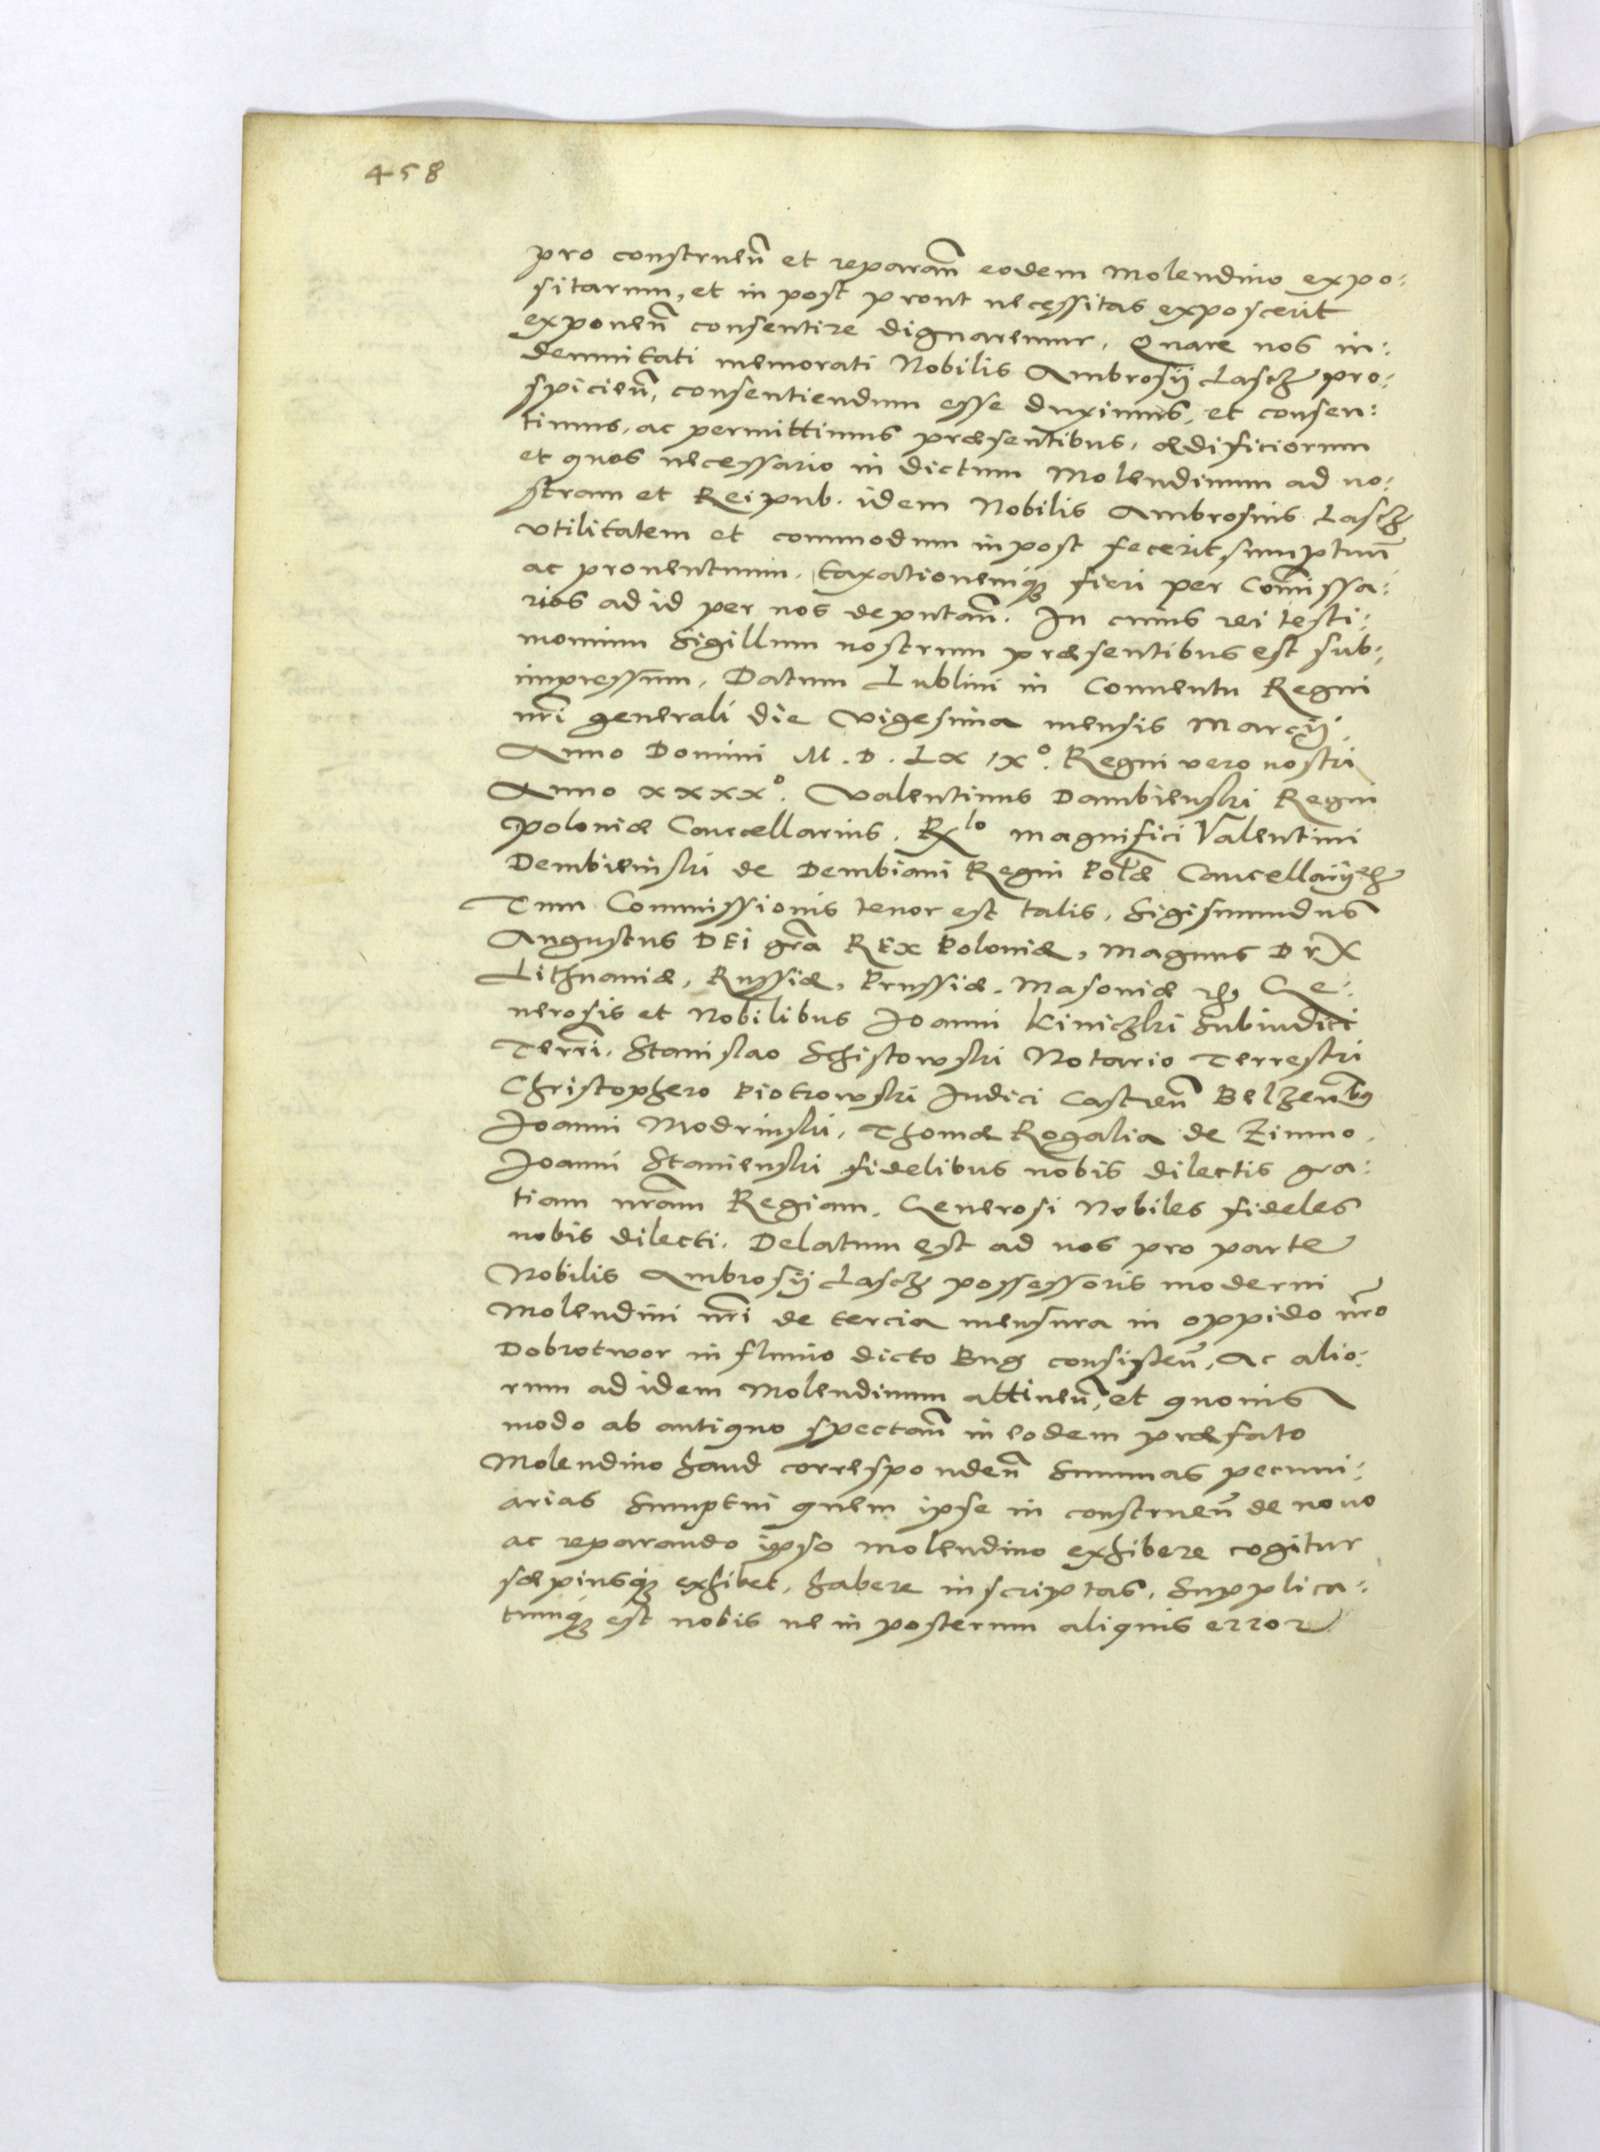 458
pro construen̄ et reparan̄ eodem Molendino expo:
sitarum, et in post prout necessitas exposcerit
exponen̄ consentire dignaremur. Quare nos in:
demnitati memorati Nobilis Ambrosij Lasch pro:
spicien̄, consentiendum esse duximus, et consen:
timus, ac permittimus præsentibus, ædificiorum
et quos necessario in dictum Molendinum ad no:
stram et Reipub. idem Nobilis Ambrosius Lasch
vtilitatem et commodum inpost fecerit sumptuum̄
ac prouentuum, taxationemq₃ fieri per Com̄issa:
rios ad id per nos deputan̄. In cuius rei testi:
monium Sigillum nostrum præsentibus est sub:
impressum. Datum Lublini in Conuentu Regni
nr̄i generali die Vigesima mensis Marcij.
Anno Domini M. D. LX IX°. Regni vero nostri
Anno XXXX°. Valentinus Dambienski Regni
Poloniæ Cancellarius. Rlo Magnifici Valentini
Dembienski de Dembiani Regni Pol̄æ Cancellarij etc
Tum Commissionis tenor est talis. Sigismundus
Augustus DEi gr̄a REX Poloniæ, Magnus Dux
Lithuaniæ, Russiæ, Prussiæ, Masouiæ etc Ge:
nerosis et Nobilibus Joanni Kiniczki Subiudici
Terrr̄i. Stanislao Schistowski Notario Terrestri
Christophero Piotrowski Judici Castren̄ Belzen̄bꝫ
Joanni Modrinski, Thomæ Rogalia de Zimno,
Joanni Stanienski fidelibus nobis dilectis gra:
tiam nr̄am Regiam. Generosi Nobiles fideles
nobis dilecti. Delatum est ad nos pro parte
Nobilis Ambrosij Lasch possessoris moderni
Molendini nr̄i de tercia mensura in oppido nr̄o
Dobrotwor in fluuio dicto Bug consisten̄, Ac alio:
rum ad idem Molendinum attinen̄, et quouis
modo ab antiquo spectan̄ in eodem præfato
Molendino haud corresponden̄ Summas pecuni:
arias Sumptui quem ipse in construen̄ de nouo
ac reparando ipso Molendino exhibere cogitur
sæpiusq₃ exhibet, habere inscriptas. Supplica:
tumq₃ est nobis ne in posterum aliquis error